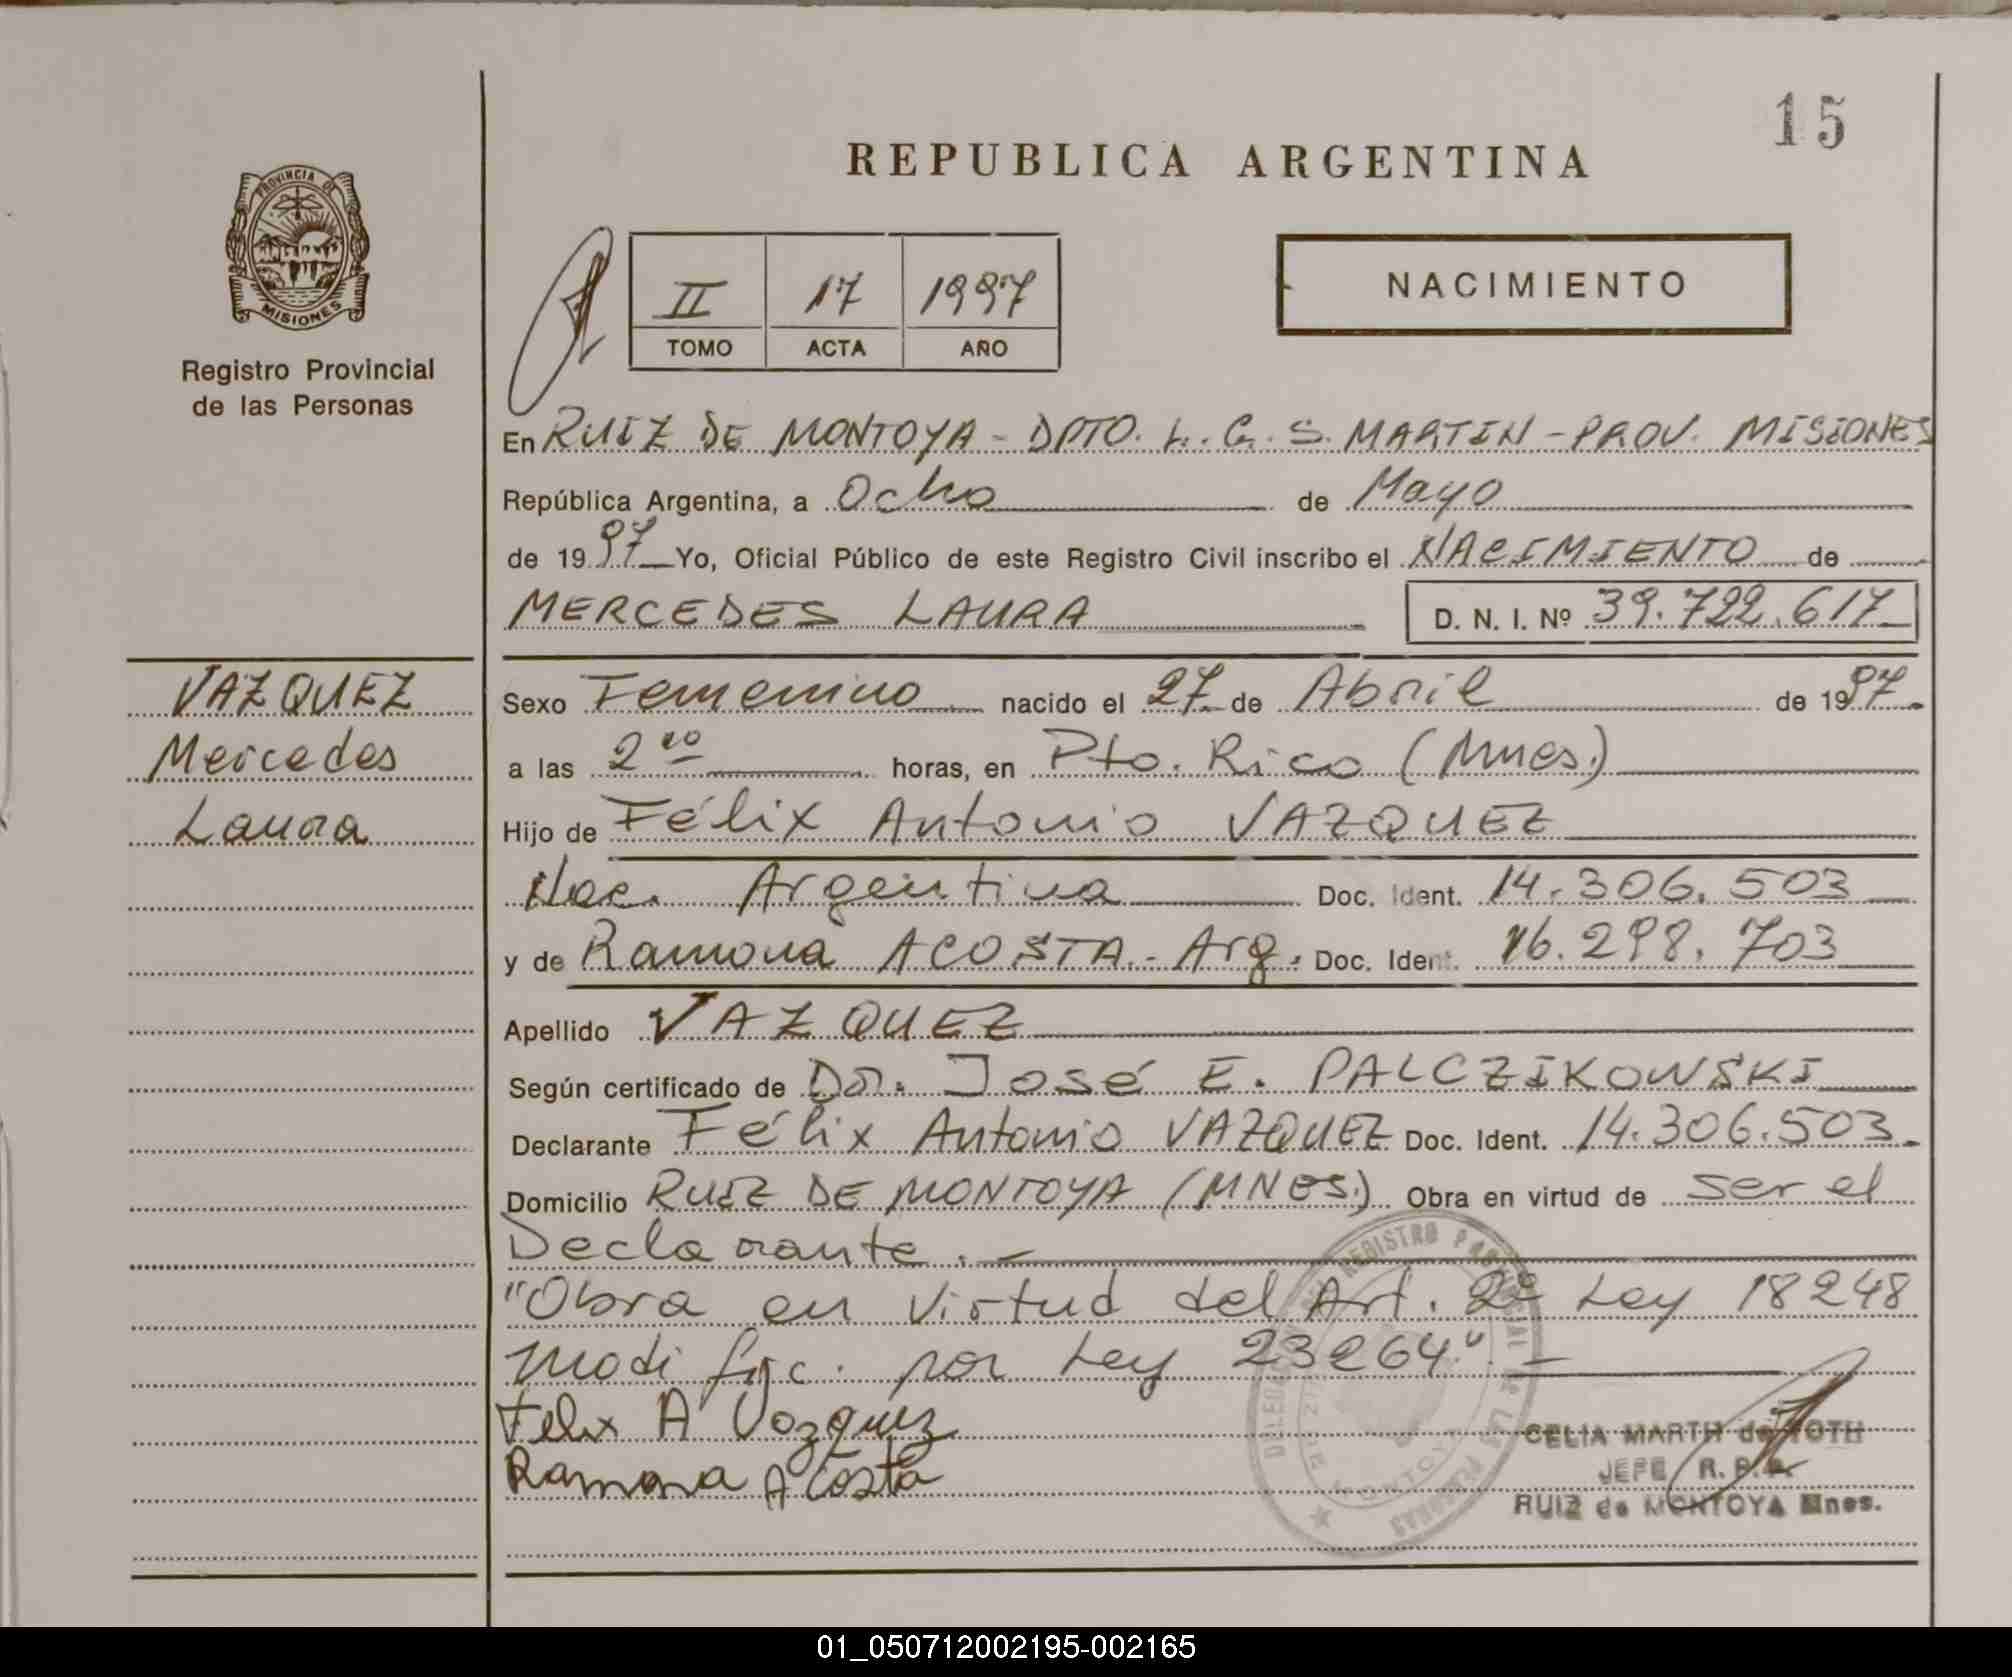 15
REPUBLICA ARGENTINA
PROVINCIA DE
MISIONES
Registro Provincial
de las Personas
II 17 1997
TOMO ACTA AÑO
NACIMIENTO
En RUIZ DE MONTOYA - DPTO. L. G. S. MARTIN - PROV. MISIONES
República Argentina, a Ocho de Mayo
de 19 97 Yo, Oficial Público de este Registro Civil inscribo el NACIMIENTO de
MERCEDES LAURA D. N. I. Nº 39.722.617
VAZQUEZ
Mercedes
Laura
Sexo Femenino nacido el 27 de Abril de 1997.
a las 2 00 horas, en Pto. Rico (Mnes.)
Hijo de Félix Antonio VAZQUEZ
Nac. Argentina Doc. Ident. 14.306.503
y de Ramona ACOSTA - Arg. Doc. Ident. 16.298.703
Apellido VAZQUEZ
Según certificado de Dr. José E. PALCZIKOWSKI
Declarante Félix Antonio VAZQUEZ Doc. Ident. 14.306.503.
Domicilio RUIZ DE MONTOYA (MNES.) Obra en virtud de ser el
Declarante.
"Obra en virtud del Art. 2º Ley 18248
modific. por Ley 23264".
Felix A Vazquez
Ramona Acosta
CELIA MARTH de TOTH
JEFE R. P. P.
RUIZ de MONTOYA Mnes.
01_050712002195-002165